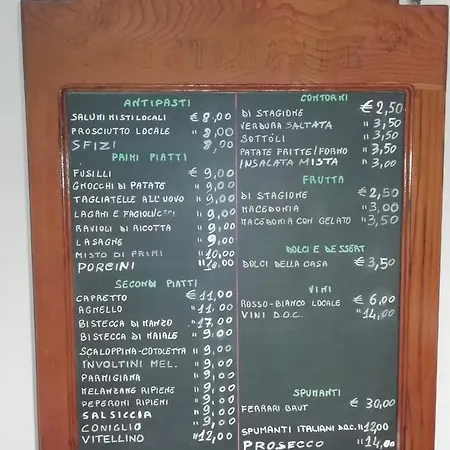 ANTIPASTI
SALUMI MISTI LOCALI € 8,00
PROSCIUTTO LOCALE " 8,00
SFIZI 8,00
PRIMI PIATTI
FUSILLI € 9,00
GNOCCHI DI PATATE " 9,00
TAGLIATELLE ALL'UOVO " 9,00
LAGANI E FAGIOLI/CECI " 9,00
RAVIOLI DI RICOTTA " 9,00
LASAGNE " 9,00
MISTO DI PRIMI " 10,00
PORCINI
SECONDI PIATTI
CAPRETTO € 11,00
AGNELLO " 11,00
BISTECCA DI MANZO " 17,00
BISTECCA DI MAIALE " 9,00
SCALOPPINA-COTOLETTA " 9,00
INVOLTINI MEL. " 9,00
PARMIGIANA " 9,00
MELANZANE RIPIENE " 9,00
PEPERONI RIPIENI " 9,00
SALSICCIA " 9,00
CONIGLIO " 9,00
VITELLINO " 12,00
CONTORNI
DI STAGIONE € 2,50
VERDURA SALTATA " 3,50
SOTTOLI " 3,50
PATATE FRITTE/FORNO " 3,50
INSALATA MISTA " 3,00
FRUTTA
DI STAGIONE € 2,50
MACEDONIA " 3,00
MACEDONIA CON GELATO " 3,50
DOLCI E DESSERT
DOLCI DELLA CASA € 3,50
VINI
ROSSO-BIANCO LOCALE € 6,00
VINI D.O.C. " 14,00
SPUMANTI
FERRARI BRUT € 30,00
SPUMANTI ITALIANI D.O.C. " 12,00
PROSECCO " 14,00